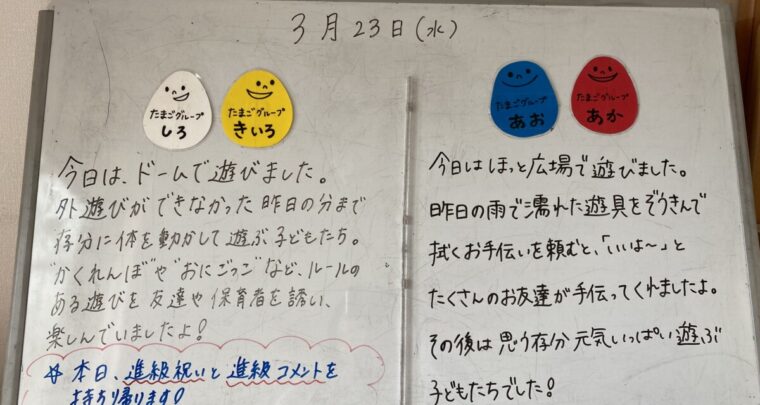 3月23日(水)
たまごグループ
しろ
たまごグループ
きいろ
今日は、ドームで遊びました。
外遊びができなかった昨日の分まで
存分に体を動かして遊ぶ子どもたち。
"かくれんぼ"や"おにごっこ"など、ルールの
ある遊びを友達や保育者を誘い、
楽しんでいましたよ!
☆本日、進級祝いと進級コメントを
持ち帰ります!
たまごグループ
あお
たまごグループ
あか
今日はほっと広場で遊びました。
昨日の雨で濡れた遊具をぞうきんで
拭くお手伝いを頼むと、「いいよ〜」と
たくさんのお友達が手伝ってくれましたよ。
その後は思う存分元気いっぱい遊ぶ
子どもたちでした!